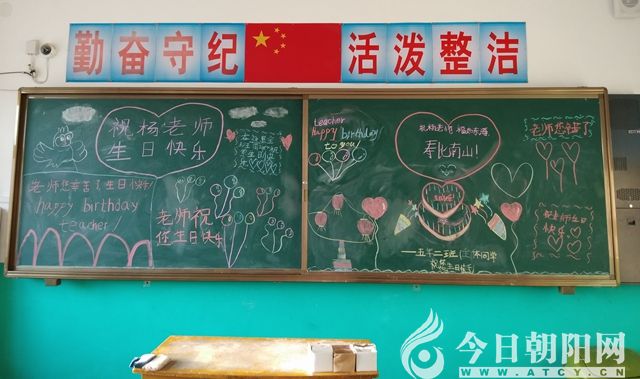 勤奋守纪 活泼整洁
祝杨老师
生日快乐
老师您辛苦了生日快乐
happy birthday
teacher
老师祝
您生日快乐
teacher
happy birthday
to you
祝杨老师 福如东海
寿比南山!
老师您辛苦了
祝老师生日
快乐
今日朝阳网
WWW.ATCY.CN